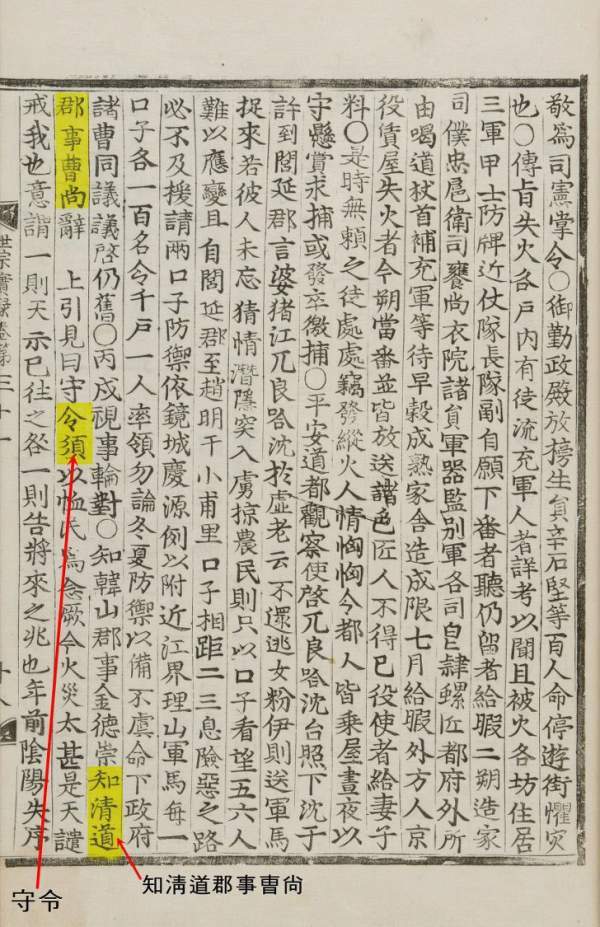 敬爲司憲掌令○御勤政殿放榜生員辛石堅等百人命停遊街懼灾
也○傳旨失火各戶內有徒流充軍人者詳考以聞且被火各坊住居
三軍甲士防牌近仗隊長隊副自願下番者聽仍留者給暇二朔造家
司僕忠扈衛司饔尚衣院諸員軍器監別軍各司皀隸螺匠都府外所
由喝道杖首補充軍等待早穀成熟家舍造成限七月給暇外方人京
役賃屋失火者今朔當番並皆放送諸色匠人不得已役使者給妻子
料○是時無賴之徒處處竊發縱火人情恟恟今都人皆乘屋晝夜以
守懸賞求捕或發卒徼捕○平安道都觀察使啓兀良哈沈台照下沈于
許到閭延郡言婆猪江兀良哈沈於虛老云不還逃女粉伊則送軍馬
捉來若彼人未忘猜情潛隱突入虜掠農民則只以口子看望五六人
難以應變且自閭延郡至趙明干小甫里口子相距二三息險惡之路
必不及援請兩口子防禦依鏡城慶源例以附近江界理山軍馬每一
口子各一百名令千戶一人率領勿論冬夏防禦以備不虞命下政府
諸曹同議議啓仍舊○丙戌視事輪對○知韓山郡事金德崇知清道
郡事曹尚辭 上引見曰守令須以恤民爲念厥今火災太甚是天譴
戒我也意謂一則天示已往之咎一則告將來之兆也年前陰陽失序
世宗實錄卷第三十一 十八
知淸道郡事曺尙
守令